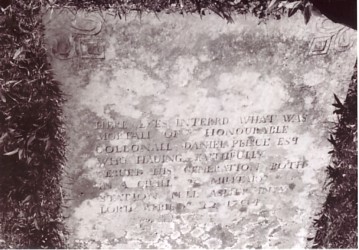 HERE LYES INTERRD WHAT WAS
MORTALL OF HONOURABLE
COLLONALL DANIELL PEIRCE ESQ
WHO HAUING FAITHFULLY
SERUED HIS GENERATION BOTH
IN A CIUILL & MILITARY
STATION FELL ASLEEP IN
LORD